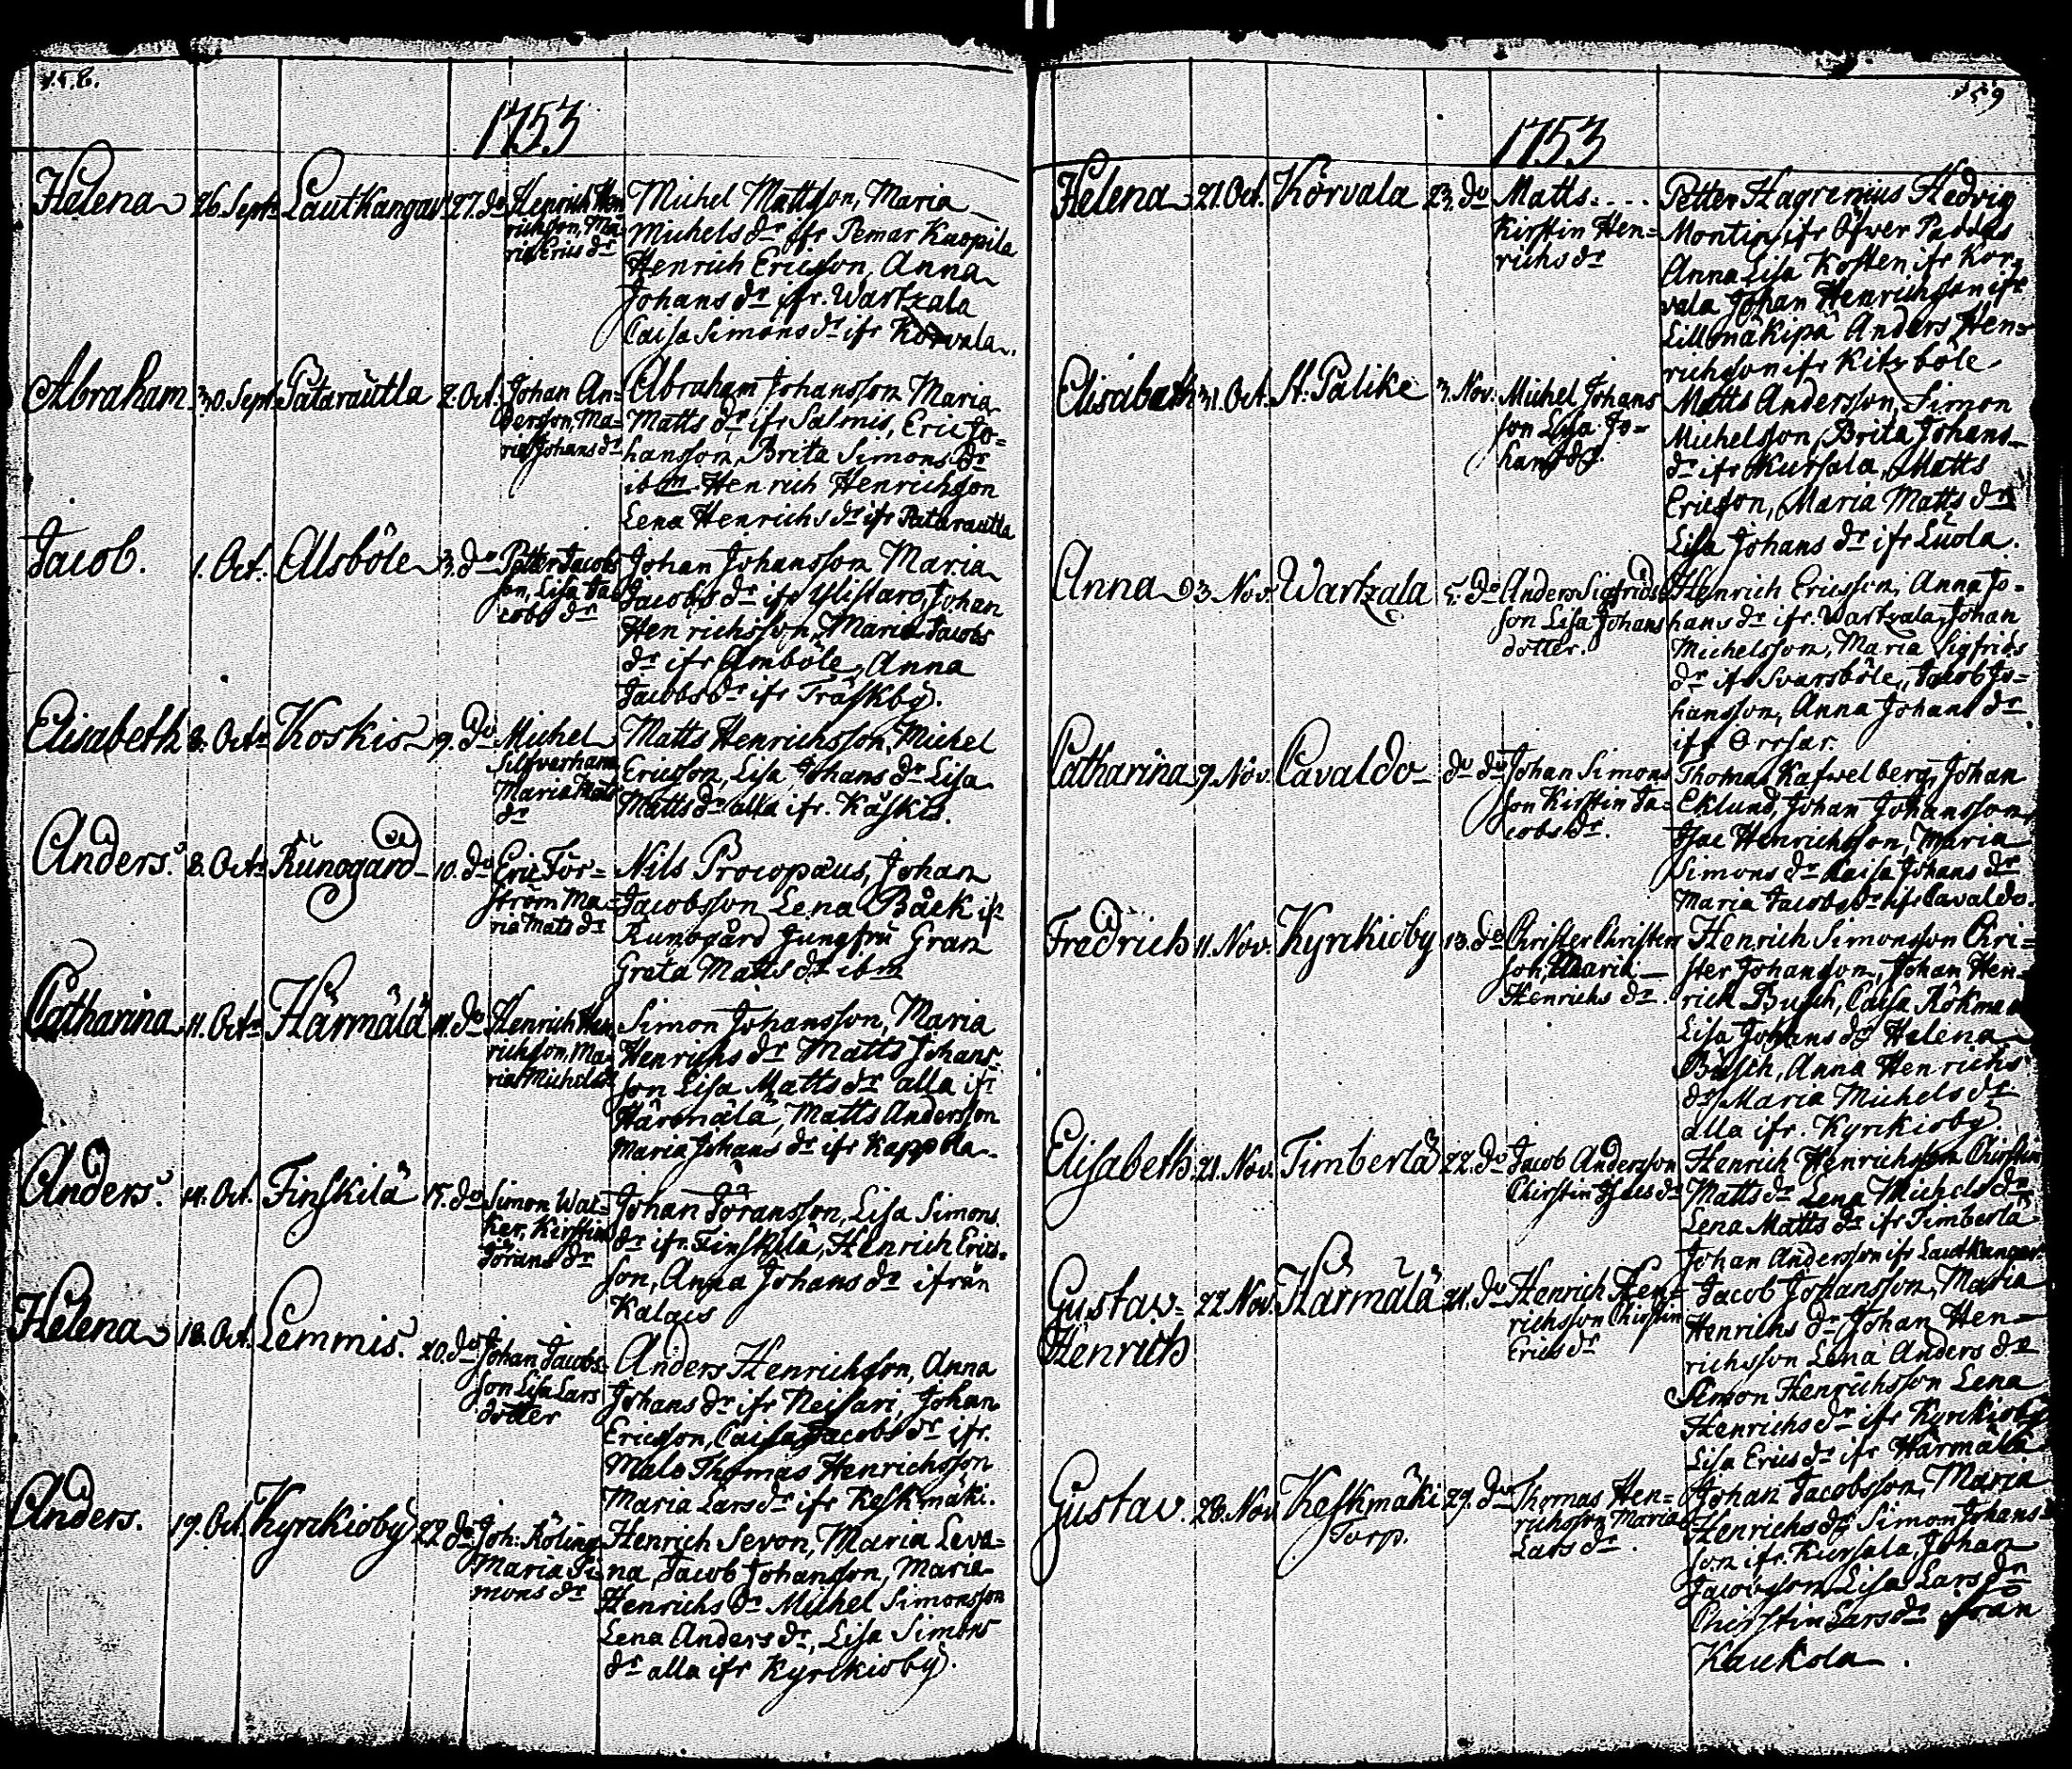 158.
1753
Helena 26. Sept. Lautkangar 27. do Henrich Hen
richsson, Ma-
ria Erics dr
Michel Mattsson, Maria
Michels dr ifr Pemar Kaopila
Henrich Ericsson, Anna
Johans dr ifr. Wartzala
Caisa Simons dr ifr Korvala.
Abraham 30. Sept. Patarautla 2. Oct. Johan An-
dersson, Ma-
ria Johans dr
Abraham Johansson Maria
Matts dr ifr Salmis, Eric Jo-
hansson, Brita Simons dr
ibm. Henrich Henrichsson
Lena Henrichs dr ifr Patarautla
Jacob. 1. Oct. Alsböle 3. do Petter Jacobs
son, Lisa Ja-
cobs dr
Johan Johansson Maria
Jacobs dr ifr Ylistaro, Johan
Henrichsson, Maria Jacobs
dr ifr Amböle, Anna
Jacobs dr ifr Träskby.
Elisabeth 8. Oct. Koskis 9. do Michel
Silfverhane
Maria Mats
dr
Matts Henrichsson, Michel
Ericsson, Lisa Johans dr Lisa
Matts dr alla ifr. Käskis.
Anders. 8. Oct. Runogård 10. do Eric För-
ström Ma-
ria Mats dr
Nils Procopæus, Johan
Jacobsson Lena Bäck ifr
Runogård Jungfru Gran
Greta Matts dr ibm
Catharina 11. Oct. Härmälä 11. do Henrich Hen
richsson, Ma-
ria Michels dr
Simon Johansson, Maria
Henrichs dr Matts Johans-
son Lisa Matts dr alla ifr
Härmälä, Matts Andersson
Maria Johans dr ifr Kappola.
Anders. 14. Oct. Finskilä 15. do Simon Wal-
ker, Kirstin
Jörans dr
Johan Jöransson, Lisa Simons
dr ifr. Finskilä, Henrich Erics-
son, Anna Johans dr ifrån
Kalais
Helena 18. Oct. Lemmis. 20. do Johan Jacobs-
son Lisa Lars
dotter
Anders Henrichsson, Anna
Johans dr ifr Neisari, Johan
Ericsson, Caisa Jacobs dr ifr.
Malo Thomas Henrichsson
Maria Lars dr ifr Keskmäki.
Anders. 19. Oct. Kyrkioby 22. do Joh: Röling
Maria Si-
mons dr
Henrich Sevon, Maria Leva-
na, Jacob Johansson, Maria
Henrichs dr Michel Simonsson
Lena Anders dr, Lisa Simons
dr alla ifr Kyrkioby.
159
1753
Helena 21. Oct. Korvala 23. do Matts....
Kirstin Hen-
richs dr
Petter Hagrenius Hedvig
Montin ifr Öfwer Paddas
Anna Lisa Kosten ifr Kor-
vala Johan Henrichsson ifr
Lillmäkipä Anders Hen-
richson ifr Kitzböle
Elisabeth 31. Oct. St. Palike 3. Nov. Michel Johans
son Lisa Jo-
hans dr.
Matts Andersson, Simon
Michelsson, Brita Johans
dr ifr Kursala, Matts
Ericsson, Maria Matts dr
Lisa Johans dr ifr Luola.
Anna 3. Nov. Wartzala 5. do Anders Sigfrids
son Lisa Johans
dotter.
Henrich Ericsson, Anna Jo-
hans dr ifr. Wartzala, Johan
Michelsson, Maria Sigfrids
dr ifr Svarsböle, Jacob Jo-
hansson, Anna Johans dr
ifr Orrsar.
Catharina 9. Nov. Cavaldo do do Johan Simons
son Kirstin Ja-
cobs dr.
Thomas Kafwelberg, Johan
Eklund, Johan Johansson,
Isac Henrichsson, Maria
Simons dr Kaisa Johans dr
Maria Jacobs dr ifr Cavaldo.
Fredrich 11. Nov. Kyrkioby 13. do Christer Christers
son, Maria
Henrichs dr.
Henrich Simonsson Chri-
ster Johansson, Johan Hen-
rich Busch, Caisa Rökman
Lisa Johans dr Helena
Busch, Anna Henrichs
dr, Maria Michels dr
alla ifr. Kyrkioby
Elisabeth 21. Nov. Timberla 22. do Jacob Andersson
Chirstin Isacs dr
Henrich Henrichsson Chirstin
Matts dr Lena Michels dr
Lena Matts dr ifr Timberla
Johan Andersson ifr Lautkangar
Gustav 22. Nov. Härmälä 24. do Henrich Hen-
Henrich
richsson Chirstin
Erics dr
Jacob Johansson, Maria
Henrichs dr Johan Hen-
richsson Lena Anders dr
Simon Henrichsson Lena
Henrichs dr ifr Kyrkioby
Lisa Erics dr ifr Härmälä
Gustav. 28. Nov. Keskmäki 29. do Thomas Hen-
Torp.
richsson Maria
Lars dr.
Johan Jacobsson, Maria
Henrichs dr, Simon Johans
son ifr. Kursala, Johan
Jacobsson Lisa Lars dr
Chirstin Lars dr ifrån
Kaukola.